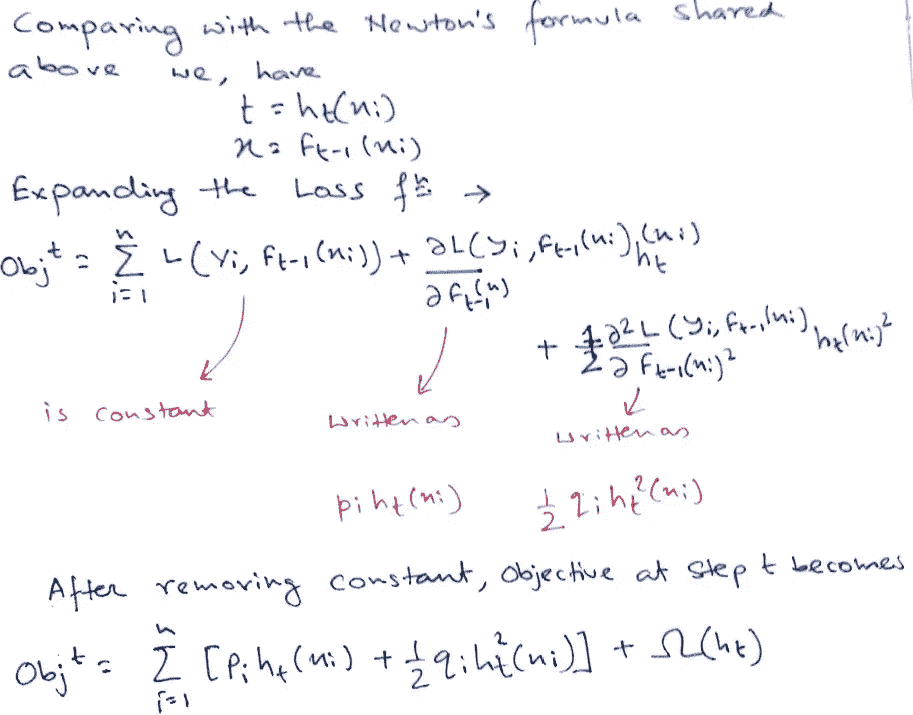 Comparing with the Newton's formula shared
above we, have
t = ht(xi)
x = Ft-1(xi)
Expanding the Loss fn →
Obj^t = Σ_{i=1}^{n} L(Yi, Ft-1(xi)) + ∂L(yi, Ft-1(xi))/∂Ft-1(x) ht(xi)
+ 1/2 ∂²L(yi, Ft-1(xi))/∂Ft-1(xi)² ht(xi)²
is constant written as written as
pi ht(xi) 1/2 qi ht²(xi)
After removing constant, Objective at step t becomes
Obj^t = Σ_{i=1}^{n} [Pi ht(xi) + 1/2 qi ht²(xi)] + Ω(ht)